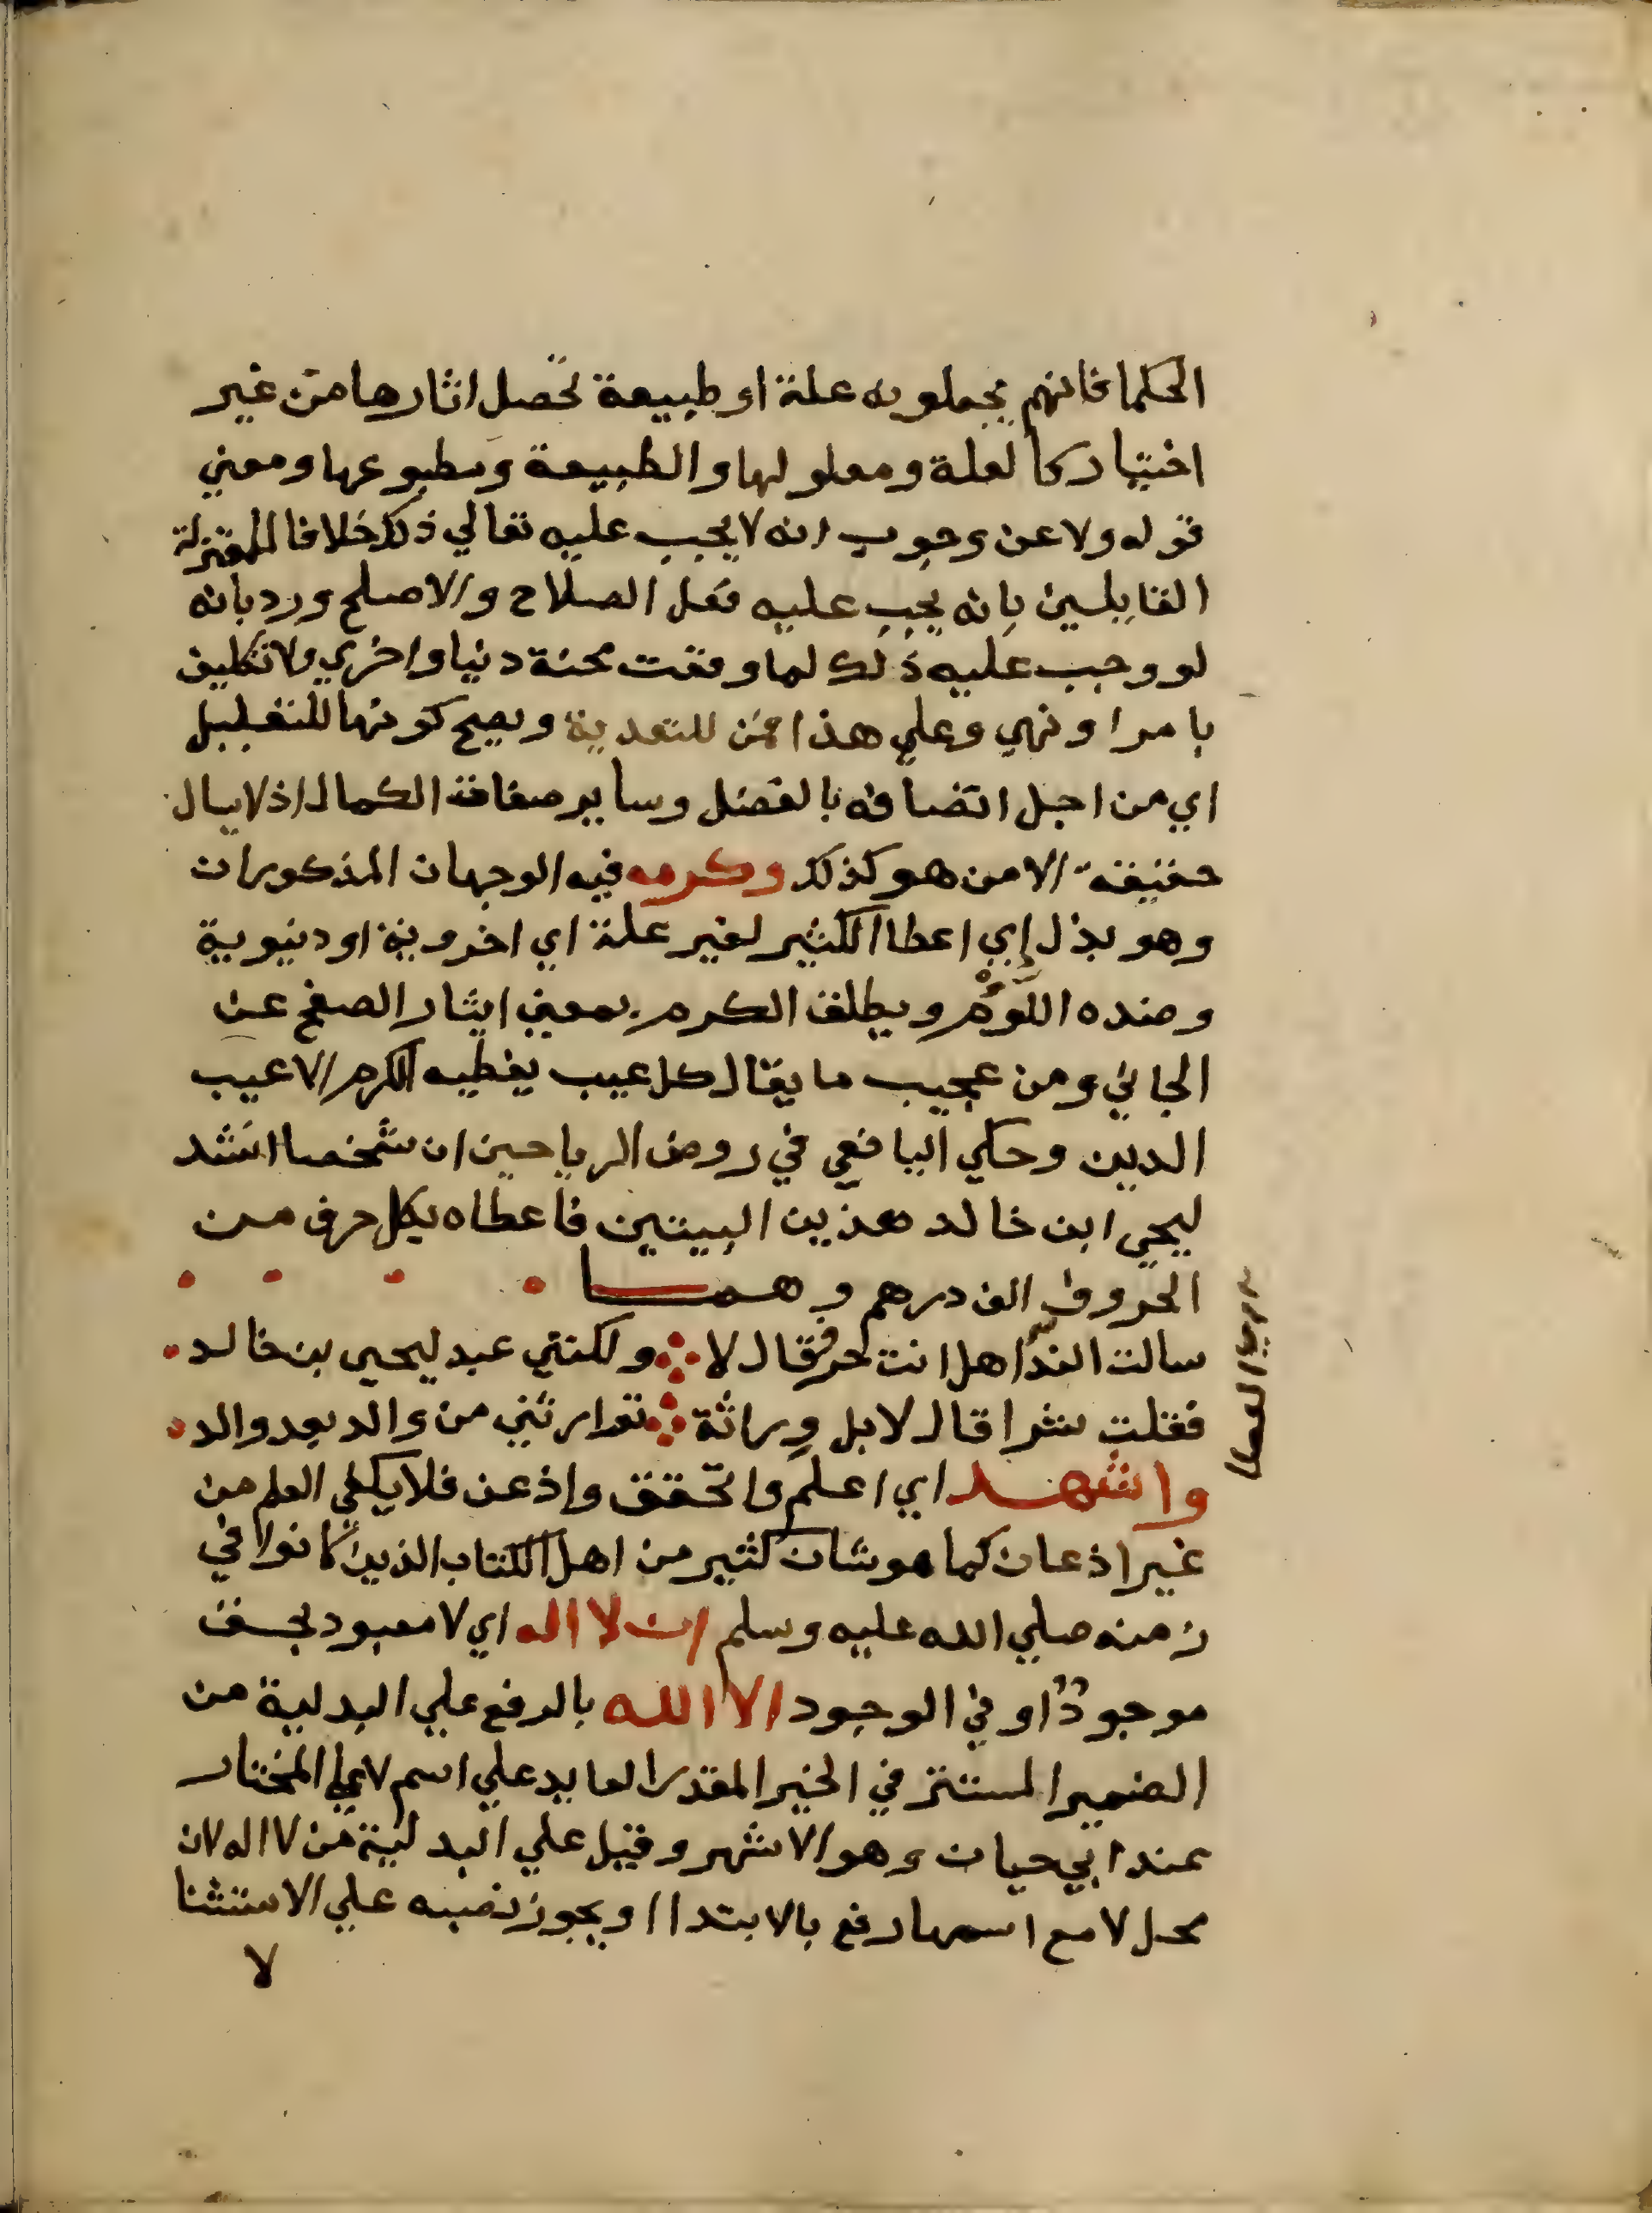 الحكما فانهم يجعلونه علة او طبيعة تحصل اثارها من غير
اختيار كالعلة ومعلولها والطبيعة ومطبوعها ومعني
قوله ولا عن وجوب انه لا يجب عليه تعالي ذلك خلافا للمعتزلة
القايلين بانه يجب عليه فعل الصلاح والاصلح ورد بانه
لو وجب عليه ذلك لما وقعت محنة دنيا واخري ولا تكليف
بامر او نهي وعلي هذا فمن للتعدية ويصح كونها للتعليل
اي من اجل اتصافه بالفضل وساير صفات الكمال اذ لا يسال
حقيقة الا من هو كذلك وكرمه فيه الوجهان المذكوران
وهو بذل اي اعطا الكثير لغير علة اي اخروية او دنيوية
وضده اللؤم ويطلق الكرم بمعني ايثار الصفح عن
الجاني ومن عجيب ما يقال كل عيب يغطيه الكرم الا عيب
الدين وحكي اليافعي في روض الرياحين ان شخصا انشد
ليحي ابن خالد هذين البيتين فاعطاه بكل حرف من
الحروف الف درهم وهما
سالت الندا هل انت حر فقال لا ولكنني عبد ليحيي بن خالد
فقلت شرا قال لا بل وراثة توارثني من والد بعد والد
واشهد اي اعلم واتحقق واذعن فلا يكفي العلم من
غير اذعان كما هو شان كثير من اهل الكتاب الذين كانوا في
زمنه صلي الله عليه وسلم ان لا اله اي لا معبود بحق
موجودٌ او في الوجود الا الله بالرفع علي البدلية من
الضمير المستتر في الخبر المقدر العايد علي اسم لا علي المختار
عند ابي حيان وهو الاشهر وقيل علي البدلية من لا اله لان
محل لا مع اسمها رفع بالابتدا او يجوز نصبه علي الاستثنا
لا